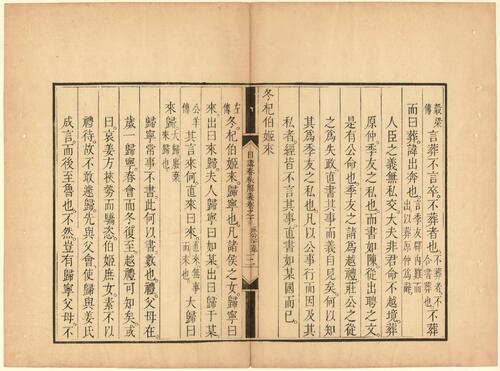 穀梁傳言葬不言卒不葬者也不葬者不合書葬也不葬
而曰葬諱出奔也言季友辟內難而出以葬原仲爲辭
人臣之義無私交大夫非君命不越境葬
原仲季友之私也而書如陳從出聘之文
是有公命也季友之請爲越禮莊公之從
之爲失政直書其事而義自見矣何以知
其爲季友之私也凡以公事行而因及其
私者經皆不言其事直書如某國而已
冬杞伯姬來
日講春秋解義卷之十
左傳冬杞伯姬來歸寧也凡諸侯之女歸寧曰
來出曰來歸夫人歸寧曰如某出曰歸于某
公羊傳其言來何直來曰來直來無事而來也大歸曰
來歸大歸廢棄來歸也
歸寧常事不書此何以書數也禮父母在
歲一歸寧春會而冬復至越禮可知矣或
曰哀姜方挾勢而驕恣伯姬庶女素不以
禮待故不敢遽歸先與父會使歸與姜氏
咸言而後至魯也不然豈有歸寧父母不